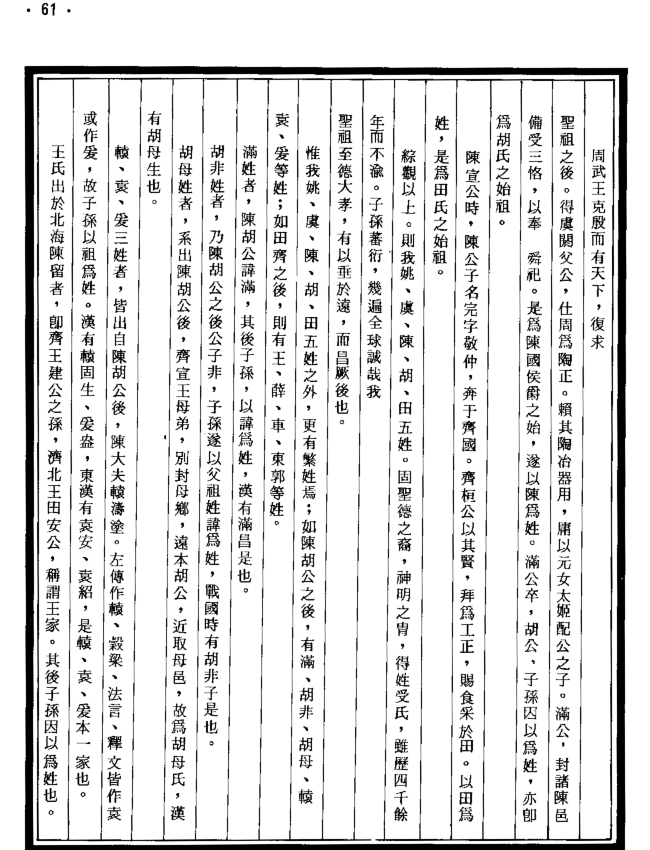 • 61 •
周武王克殷而有天下，復求
聖祖之後。得虞閼父公，仕周爲陶正。賴其陶冶器用，庸以元女太姬配公之子。滿公，封諸陳邑
備受三恪，以奉　舜祀。是爲陳國侯爵之始，遂以陳爲姓。滿公卒，胡公，子孫因以爲姓，亦卽
爲胡氏之始祖。
陳宣公時，陳公子名完字敬仲，奔于齊國。齊桓公以其賢，拜爲工正，賜食采於田。以田爲
姓，是爲田氏之始祖。
綜觀以上。則我姚、虞、陳、胡、田五姓。固聖德之裔，神明之冑，得姓受氏，雖歷四千餘
年而不渝。子孫蕃衍，幾遍全球誠哉我
聖祖至德大孝，有以垂於遠，而昌厥後也。
惟我姚、虞、陳、胡、田五姓之外，更有繁姓焉；如陳胡公之後，有滿、胡非、胡母、轅
袁、爰等姓；如田齊之後，則有王、薛、車、東郭等姓。
滿姓者，陳胡公諱滿，其後子孫，以諱爲姓，漢有滿昌是也。
胡非姓者，乃陳胡公之後公子非，子孫遂以父祖姓諱爲姓，戰國時有胡非子是也。
胡母姓者，系出陳胡公後，齊宣王母弟，別封母鄉，遠本胡公，近取母邑，故爲胡母氏，漢
有胡母生也。
轅、袁、爰三姓者，皆出自陳胡公後，陳大夫轅濤塗。左傳作轅、穀梁、法言、釋文皆作袁
或作爰，故子孫以祖爲姓。漢有轅固生、爰盎，東漢有袁安、袁紹，是轅、袁、爰本一家也。
王氏出於北海陳留者，卽齊王建公之孫，濟北王田安公，稱謂王家。其後子孫因以爲姓也。